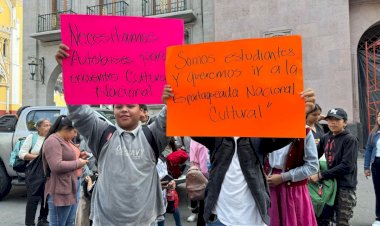 Necesitamos
Autobuses para
encuentro Cultural
Nacional
"Somos estudiantes
y queremos ir a la
Espartaqueada Nacional
Cultural"